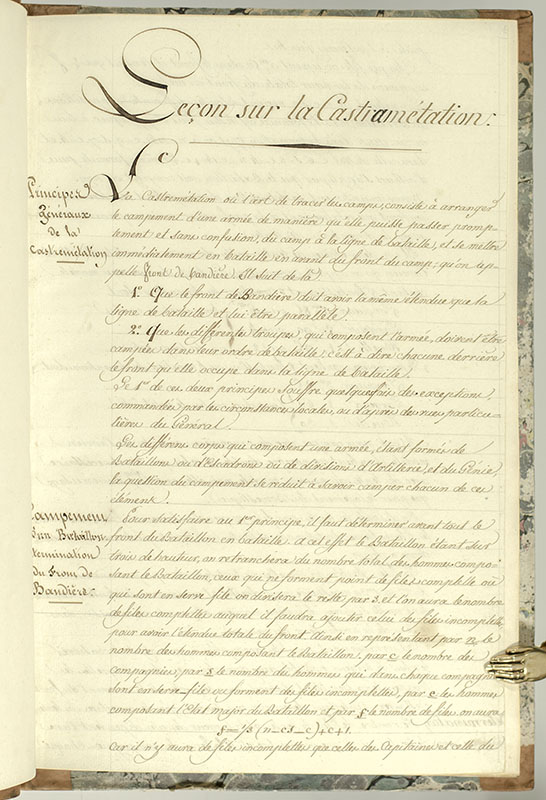 Leçon sur la Castramétation.
Principes
généraux
de la
Castramétation
La Castramétation ou l'art de tracer les camps, consiste à arranger
le campement d'une armée de manière qu'elle puisse passer promp-
tement et sans confusion, du camp à la ligne de bataille, et se mettre
immédiatement en bataille en avant du front du camp, qu'on ap-
pelle front de bandière. Il suit de là
1° Que le front de Bandière doit avoir la même étendue que la
ligne de bataille et lui être parallèle
2° Que les différentes troupes, qui composent l'armée, doivent être
campées dans leur ordre de bataille, c'est à dire chacune derrière
le front qu'elle occupe dans la ligne de bataille.
Le 1er de ces deux principes souffre quelquefois des exceptions,
commandées par les circonstances locales, ou d'après des vues particu-
lières du Général.
Les différens corps qui composent une armée, étant formés de
Bataillons ou d'Escadrons ou de divisions d'Artillerie, et du Génie
la question du campement se réduit à savoir camper chacun de ces
élémens.
Campement
d'un Bataillon
termination
du Front de
Bandière.
Pour satisfaire au 1er principe, il faut déterminer avant tout le
front du Bataillon en bataille. à cet effet le Bataillon étant sur
trois de hauteur, on retranchera du nombre total des hommes compo-
sant le Bataillon, ceux qui ne forment point de files complètes ou
qui sont en serre file on divisera le reste par 3, et l'on aura le nombre
de files complètes auquel il faudra ajouter celui des files incomplètes
pour avoir l'étendue totale du front. ainsi en représentant par n le
nombre des hommes composant le Bataillon, par c le nombre des
compagnies, par s le nombre des hommes qui dans chaque compagnie
sont en serre-file ou forment des files incomplètes, par e les hommes
composant l'Etat major du Bataillon et par f le nombre de files, on aura
f=⅓ (n-cs-e)+c+1.
car il n'y aura de files incomplètes que celles des Capitaines et celle du